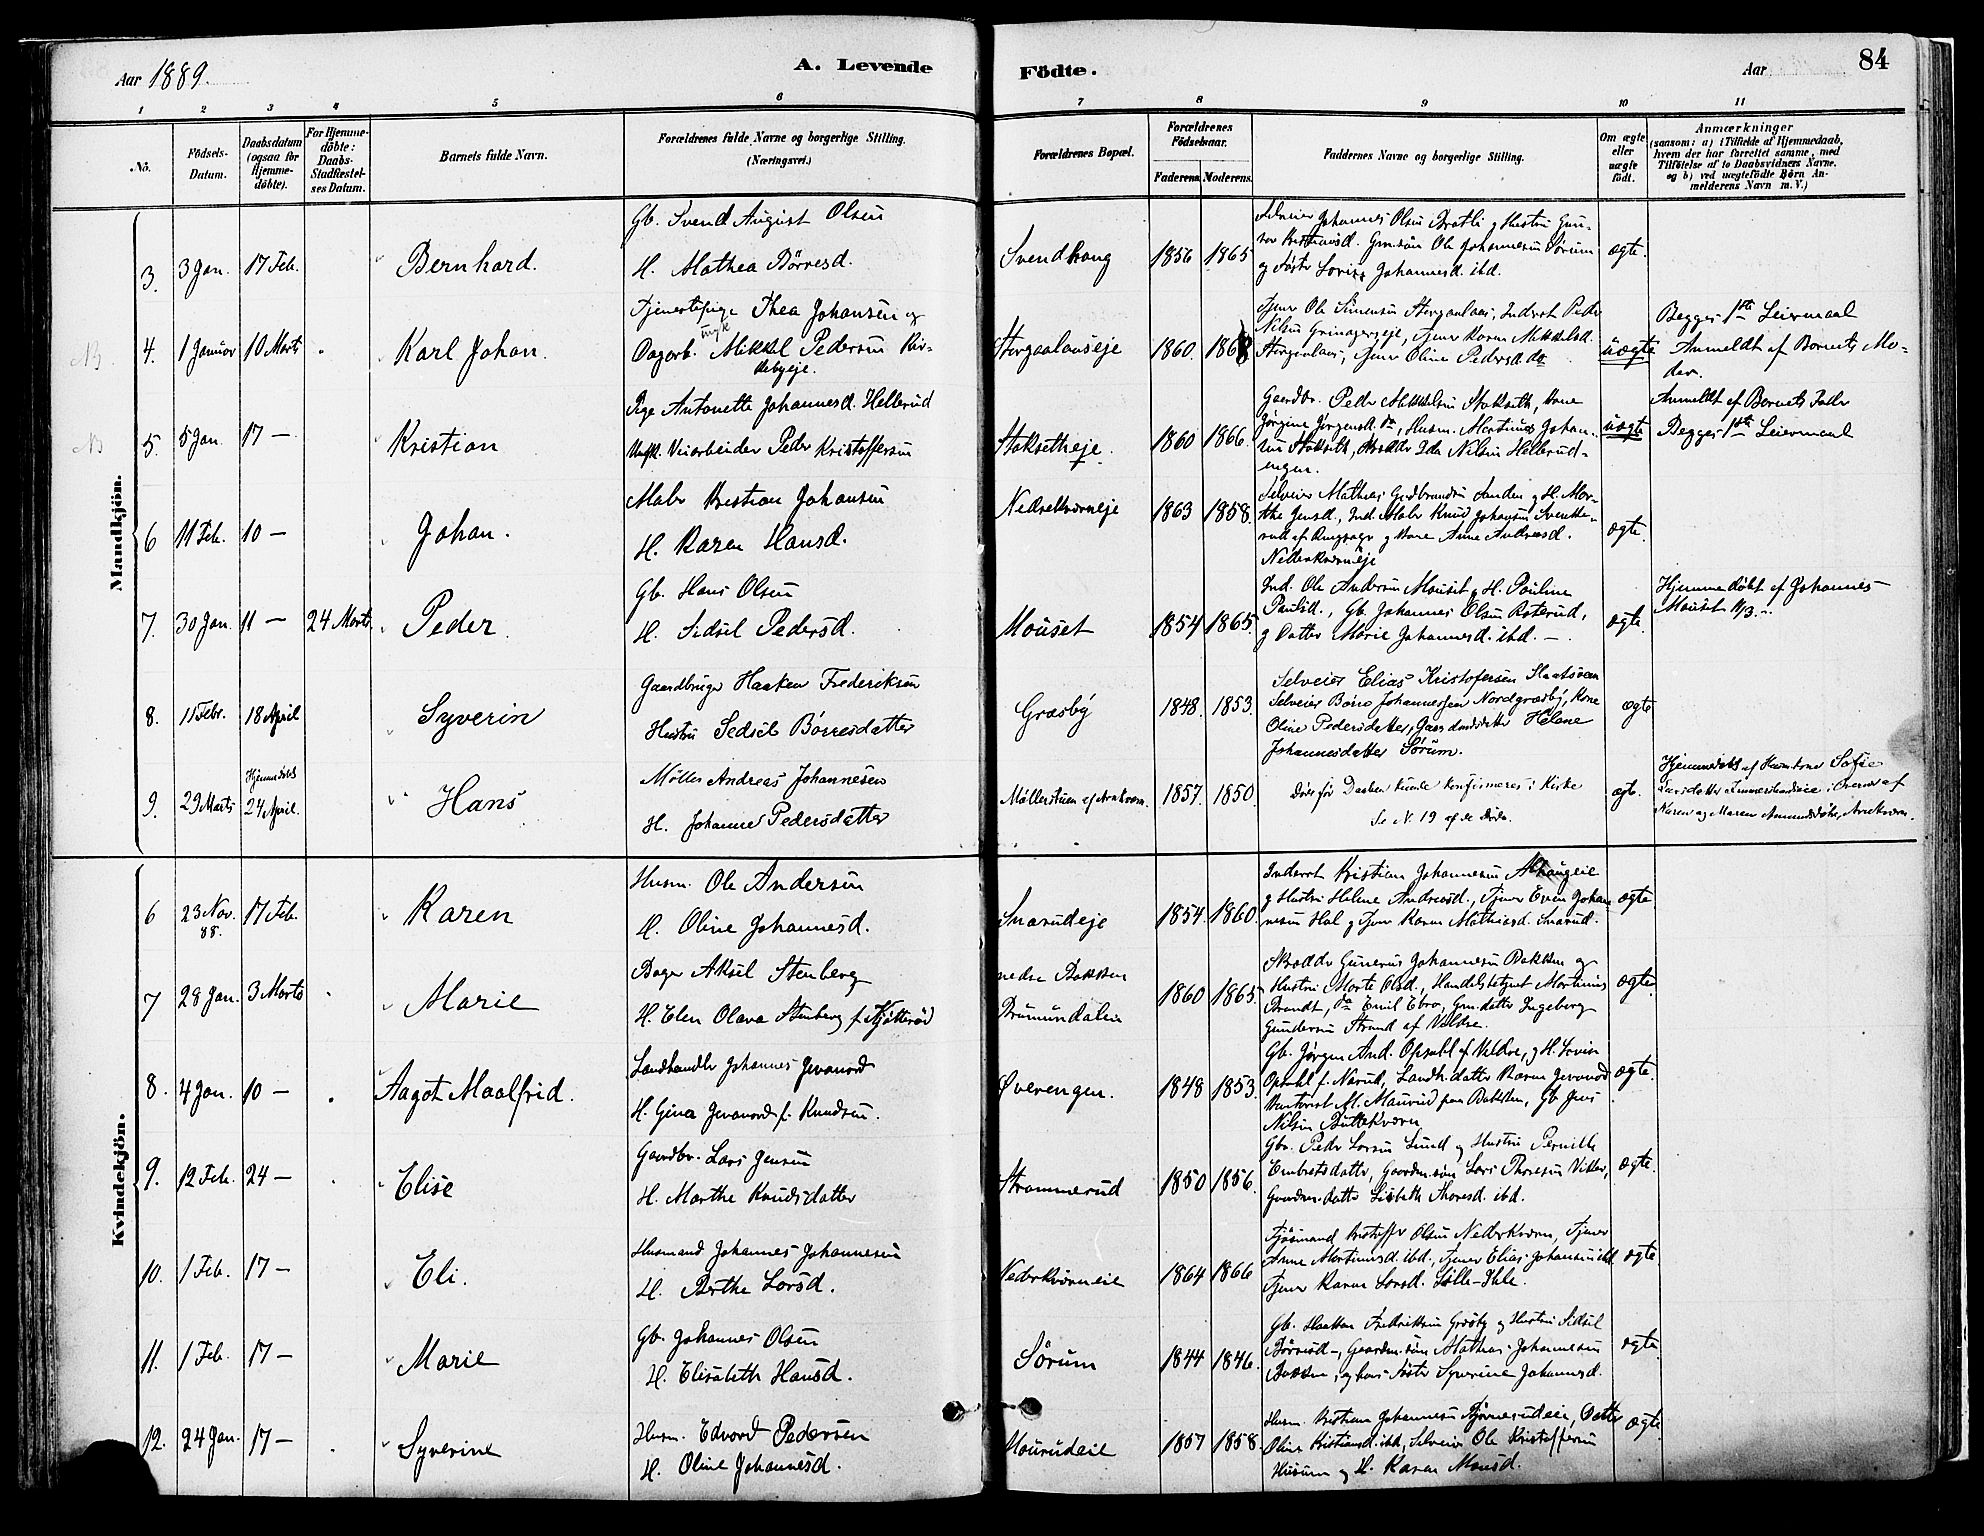 Aar 1889.
A. Levende
Födte.
Aar
84
1 2 3 4 5 6 7 8 9 10 11
No.
Födsels-
Datum.
Daabsdatum
(ogsaa for
Hjemme-
döbte).
For Hjemme-
döbte:
Daabs-
Stadfæstel-
ses Datum.
Barnets fulde Navn.
Forældrenes fulde Navne og borgerlige Stilling.
(Næringsvei.)
Forældrenes Bopæl.
Forældrenes
Födselsaar.
Faderens. Moderens.
Faddernes Navne og borgerlige Stilling.
Om ægte
eller
uægte
født.
Anmærkninger
(saasom: a) i Tilfælde af Hjemmedaab,
hvem der har forrettet samme, med
Tilföielse af to Daabsvidners Navne.
og b) ved uægtefödte Börn An-
melderens Navn m. V.)
Mandkjön.
3. 3 Jan. 17 Feb. Bernhard.
Gb. Svend August Olsen
H. Mathea Börresd.
Svendhaug 1856 1865
Selveier Johannes Olsen Bratli g Hustru Gun-
Ole Johannesen Sørum
g Søster Johannesd. ibd.
ægte.
NB 4. 1 Januar 10 Marts Karl Johan.
Tjenestepige Thea Johansen og
ungk
Dagarb. Mikkel Pedersen
1860 186
Tjener Ole Simensen Inderst Peder
Nilsen Tjener Karen Mikkelsd.
Tjener Oline Pedersd. do
uægte
Begges 1ste Leiermaal
Anmeldt af Barnets Mo-
der.
NB 5. 5 Jan. 17 — Kristian
Pige Antonette Johannesd. Hellerud
Ungk. Veiarbeider Peder Kristoffersen
Stoksetheje. 1860 1866.
Gaardbr. Peder Mikkelsen Stokseth, Kone
Jørgine Jørgensd. do, Husm. Martinus Johan-
sen Stokseth, Nilsen Hellerud-
engen.
uægte
Anmeldt af Barnets Fader
Begges 1ste Leiermaal
6 11 Feb. 10 — Johan.
Maler Kristian Johansen
H. Karen Hansd.
Nedrekværneje 1863 1858.
Selveier Mathias Gudbrandsen Sanden g H. Mar-
the Jensd., Ind. Maler Knud Johansen
af Ringsager g Kone Anne Andersd.
ægte.
7. 30 Jan. 11 — 24 Marts Peder
Gb. Hans Olsen
H. Sidsel Pedersd.
Mauset 1854 1865.
Ind. Ole Andersen Mauset g H. Pauline
Paulsd., Gb. Johannes Olsen Rosterud,
g Datter Marie Johannesd. ibd. —
ægte.
Hjemmedøbt af Johannes
Mauset 11/3.
8. 11 Febr. 18 April Syverin
Gaardbruger Haaken Frederiksen
Hustru Sedsel Börresdatter
Græsby 1848. 1853.
Selveier Elias Kristofersen
Selveier Börre Johannessen Nordgræsby, Kone
Oline Pedersdatter, Helene
Johannesdatter Sørum.
ægte
9. 29 Marts Hjemmedøbt
24 April. Hans
Møller Andreas Johannesen
H. Johanne Pedersdatter
1857. 1850.
Døde før Daaben kunde konfirmeres i Kirke
Se N. 19 af de Døde.
ægte.
Hjemmedøbt af Sofie
Karen og Maren
Kvindekjön.
6 23 Nov. 88. 17 Feb. Karen
Husm. Ole Andersen
H. Oline Johannesd.
Snarudeje 1854 1860.
Inderst Kristian Johannesen
g Hustru Helene Andreasd., Tjener Even Johan-
nesen Hol g Tjener Karen Mathiesd. Snarud.
ægte
7 28 Jan. 3 Marts Marie
Bager Aksel Stenberg
H. Elen Olava Stenberg f.
nedre Bakken
Brumundalen 1860 1865.
Skrædder Gunerius Johannesen Bakken og
Hustru Marte Olsd., Handelsbetjent Martinius
Brandt, do Emil Ebro, Grm.datter Ingeborg
Gundersen Strand af Veldre.
ægte
8. 4 Jan. 10 — Aagot Maalfrid.
Landhandler Johannes Jevanord
H. Gina Jevanord f. Knudsen.
Øverengen. 1848 1853.
Gb. Jørgen And. Opsahl af Veldre, g H. Lovise
Opsahl f. Narud, Landh.datter Karen Jevanord
Kontorist M. Maurud paa Bakken, Gb Jens
Nilsen
ægte.
9. 12 Feb. 24 — Elise
Gaardbr. Lars Jensen
H. Marthe Knudsdatter
Strammerud 1850 1856.
Gbr. Peder Larsen Lund og Hustru Pernille
Embretsdatter, Gaardm.søn Lars Thoresen
Gaardm.datter Lisbeth Thoresd. ibd.
ægte.
10. 1 Feb. 17 — Eli.
Husmand Johannes Johannesen
H. Berthe Larsd.
Nederkværneie 1864 1866
Fjøsmand Kristoffer Olsen Nederkværn, Tjener
Anne Martinusd. ibd., Tjener Elias Johansen ibd
Tjener Karen Larsd.
ægte.
11. 1 Feb. 17 — Marie
Gb. Johannes Olsen
H. Elisabeth Hansd.
Sørum 1844 1846.
Gb. Haaken Fredriksen Græsby og Hustru Sidsel
Börresd-, Gaardm.søn Mathias Johannesen
Bakken, g hans Søster Syverine Johannesd.
ægte.
12. 24 Jan. 17 — Syverine
Husm. Edvard Pedersen
H. Oline Johannesd.
Maurudeie 1857 1858.
Husm. Kristian Johannesen Datter
Oline Kristiansd. ibd, Selveier Ole Kristoffersen
Husum og H. Karen Monsd.
ægte.